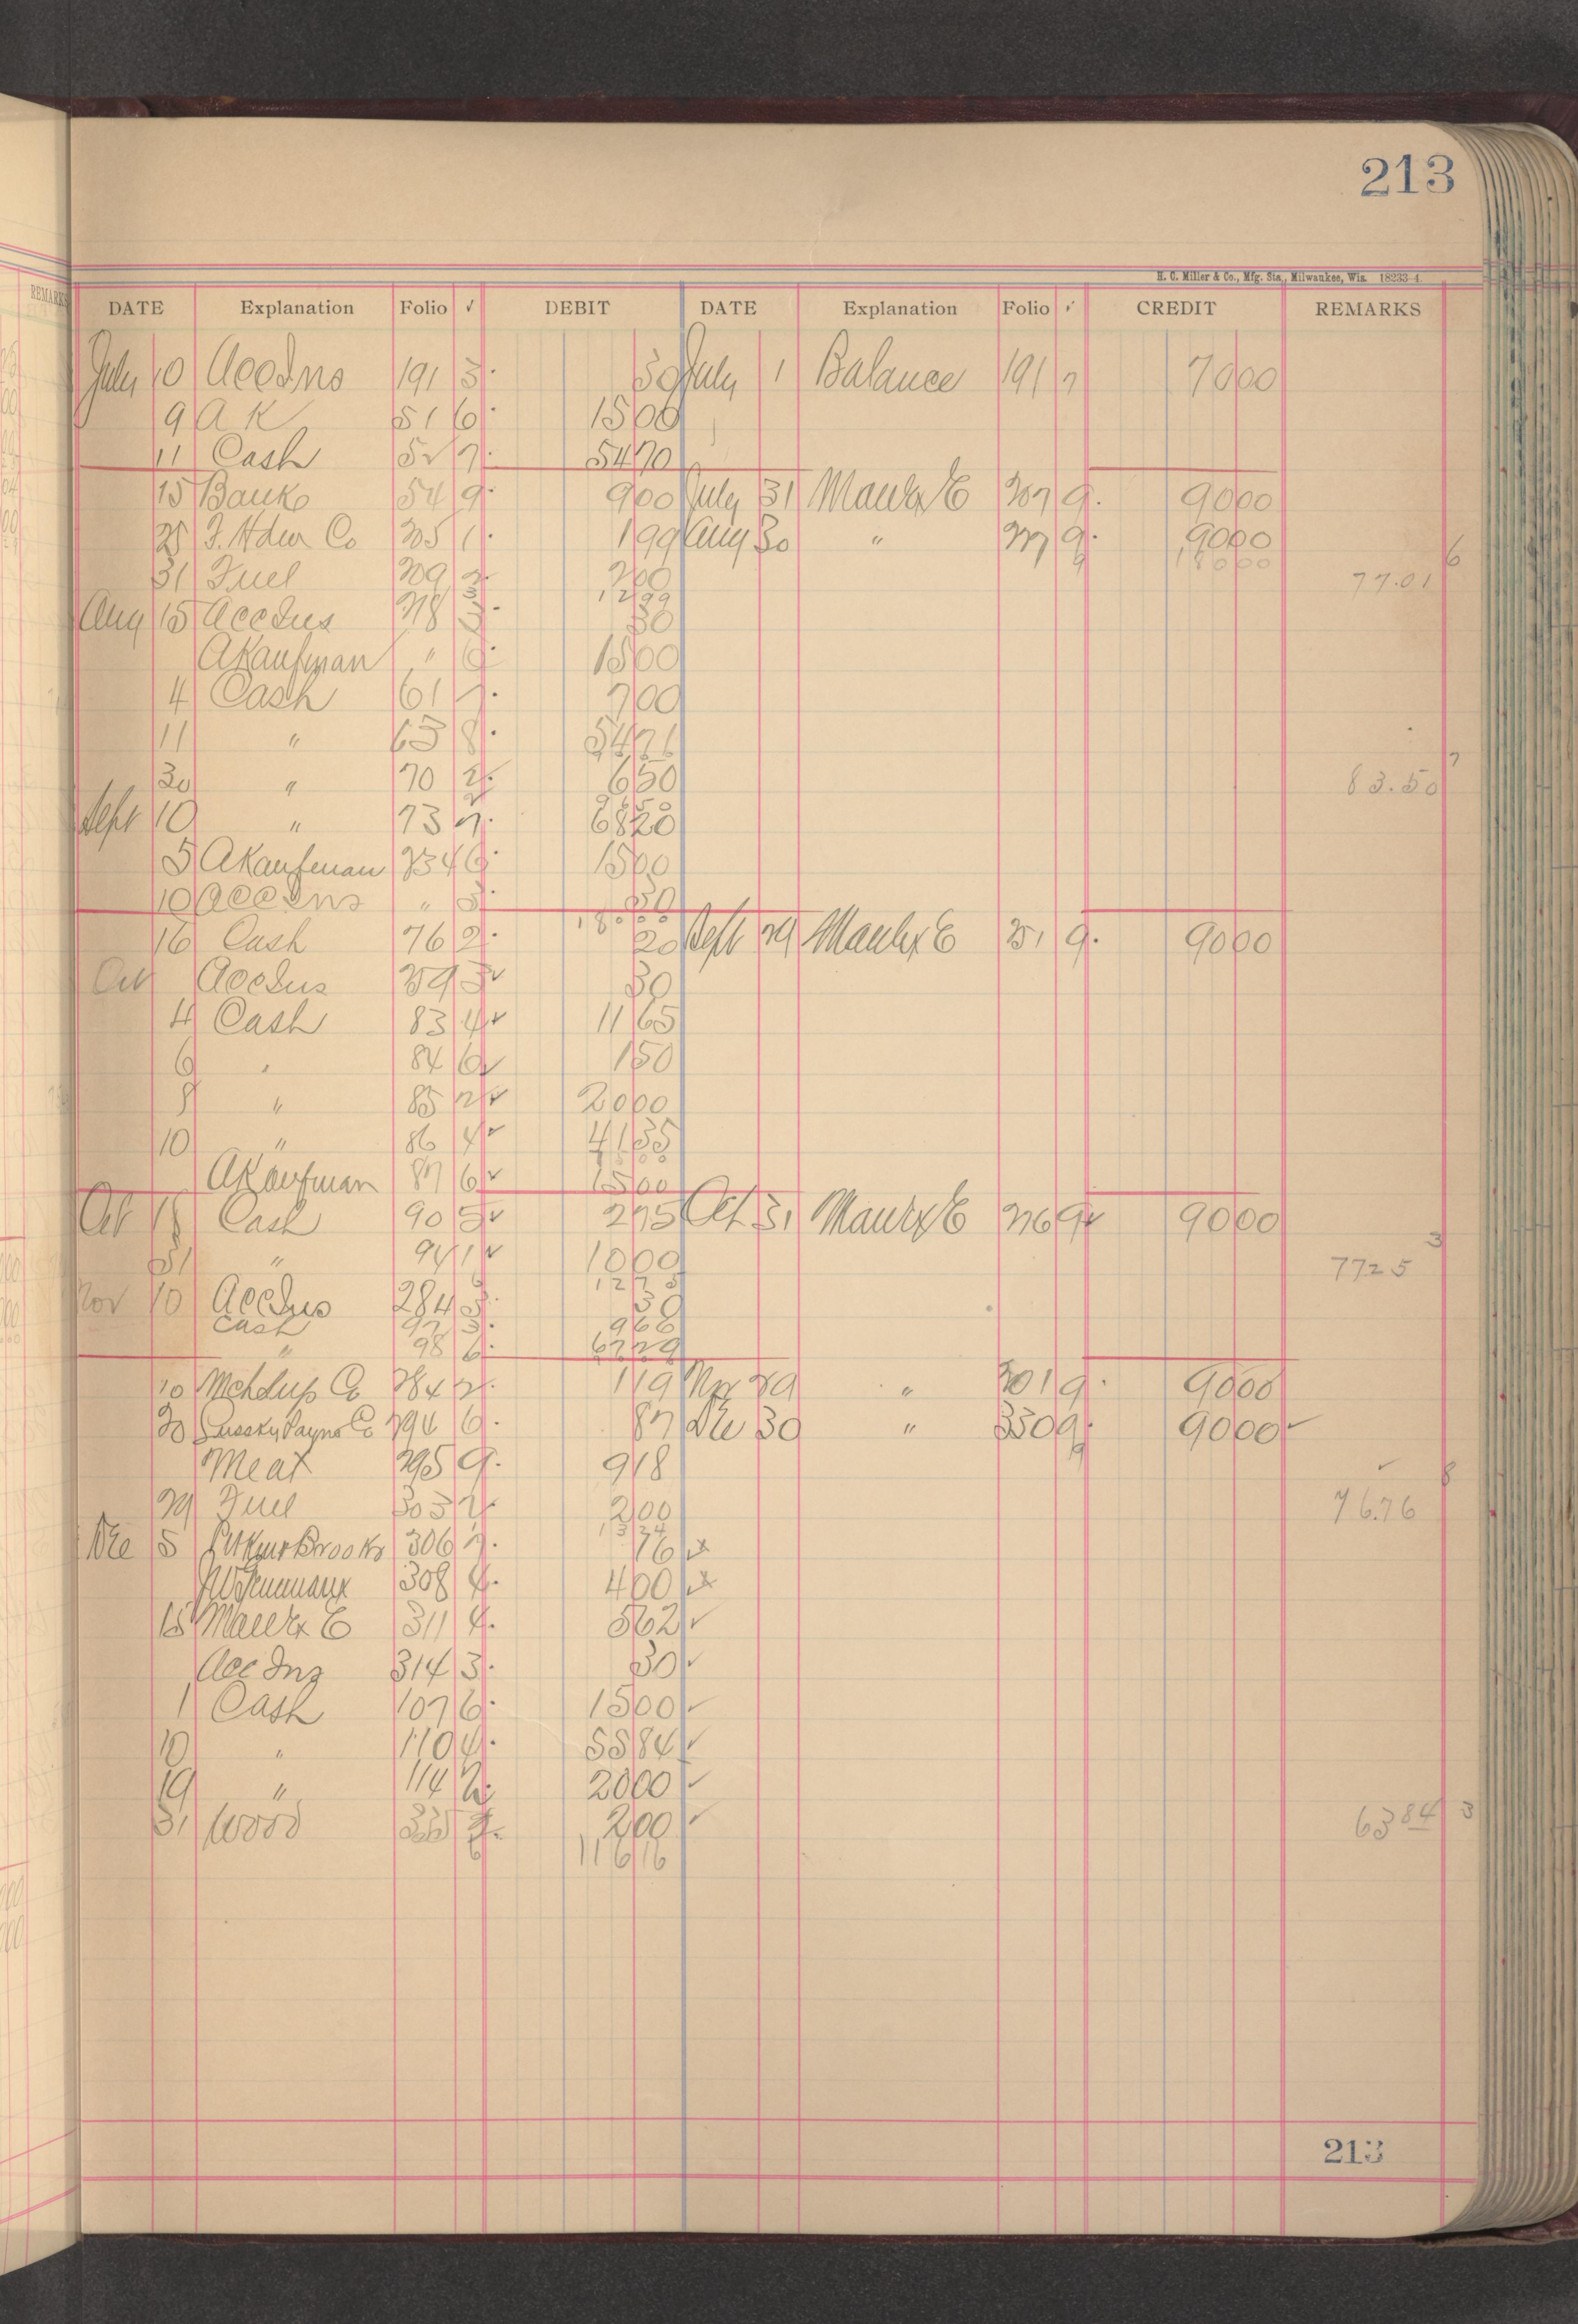 213
H. C. Miller & Co., Mfg. Sta., Milwaukee, Wis. 18233-4.
REMARKS
DATE Explanation Folio ✓ DEBIT DATE Explanation Folio ✓ CREDIT REMARKS
July 10 Acc Ins 191 3 30 July 1 Balance 191 7 70 00
9 A K 51 6 15 00
11 Cash 52 7 54 70
15 Bank 54 9 9 00 July 31 207 9 90 00
25 Co 205 1 1 99 Aug 30 " 9 90 00
180 00
31 Fuel 209 2 2 00 77.01 6
12 99
Aug 15 Acc Ins 218 3 30
A Kaufman " 6 15 00
4 Cash 61 7 7 00
11 " 65 8 54 71
30 " 70 2 6 50 83.50 7
Sept 10 " 73 7 68 20
5 A Kaufman 234 6 15 00
10 Acc Ins " 3 30
16 Cash 76 2 20 Sept 29 251 9 90 00
Oct Acc Ins 259 3 30
4 Cash 83 4 11 65
6 " 84 6 1 50
8 " 85 2 20 00
10 " 86 4 41 35
A Kaufman 87 6 15 00
Oct 18 Cash 90 5 2 75 Oct 31 276 9 90 00
31 " 94 1 10 00 77 25 3
12 75
Nov 10 Acc Ins 284 3 30
Cash 97 3 9 66
" 98 6 67 29
10 Co 284 2 1 19 Nov 29 " 301 9 90 00
30 Co 294 6 87 Dec 30 " 330 9 90 00
Meat 295 9 9 18
29 Fuel 303 2 2 00 76.76 8
13 24
Dec 5 306 7 76
308 4 4 00
15 311 4 5 62
Acc Ins 314 3 30
1 Cash 107 6 15 00
10 " 110 4 55 84
19 " 114 2 20 00
31 Wood 2 00 63 84 3
116 16
213